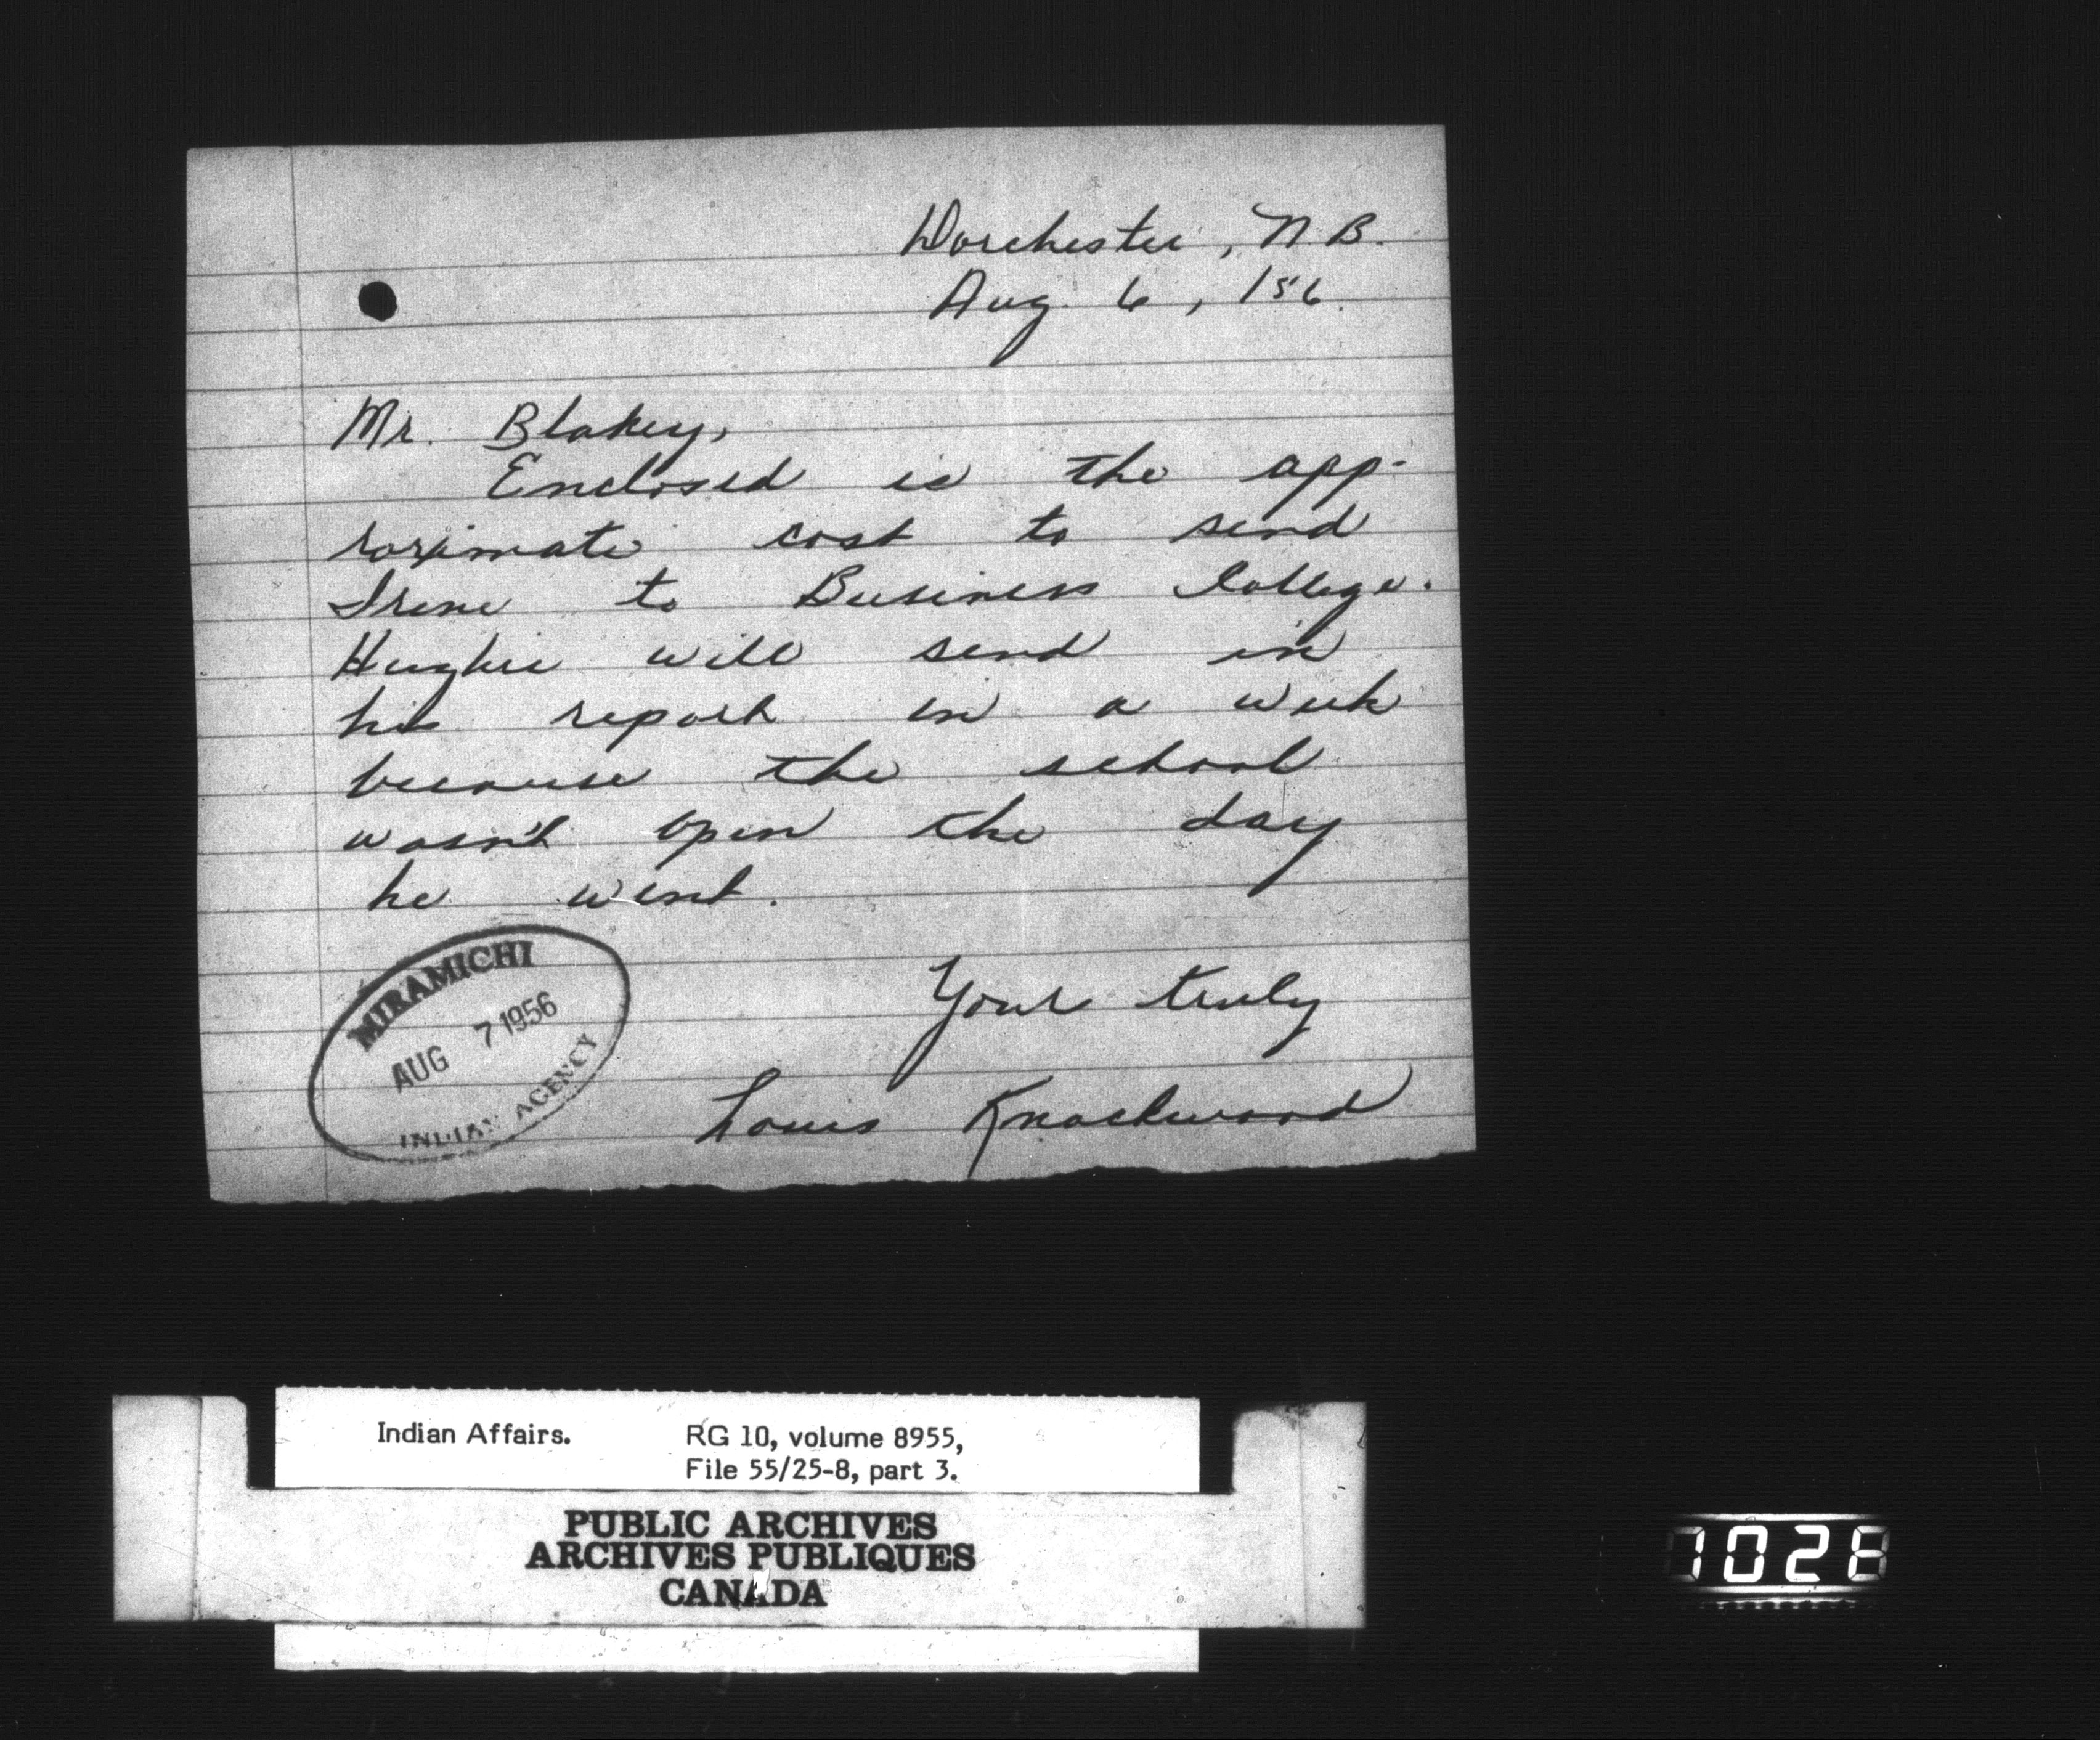 Dorchester, N.B.
Aug 6, 156.
Mr. Blakey,
Enclosed is the app-
roximate cost to send
Irene to Business College.
Hughie will send in
his report in a week
because the school
wasn't open the day
he went.
Your truly
Louis Knockwood
MIRAMICHI
AUG 7 1956
INDIAN AGENCY
Indian Affairs. RG 10, volume 8955,
File 55/25-8, part 3.
PUBLIC ARCHIVES
ARCHIVES PUBLIQUES
CANADA